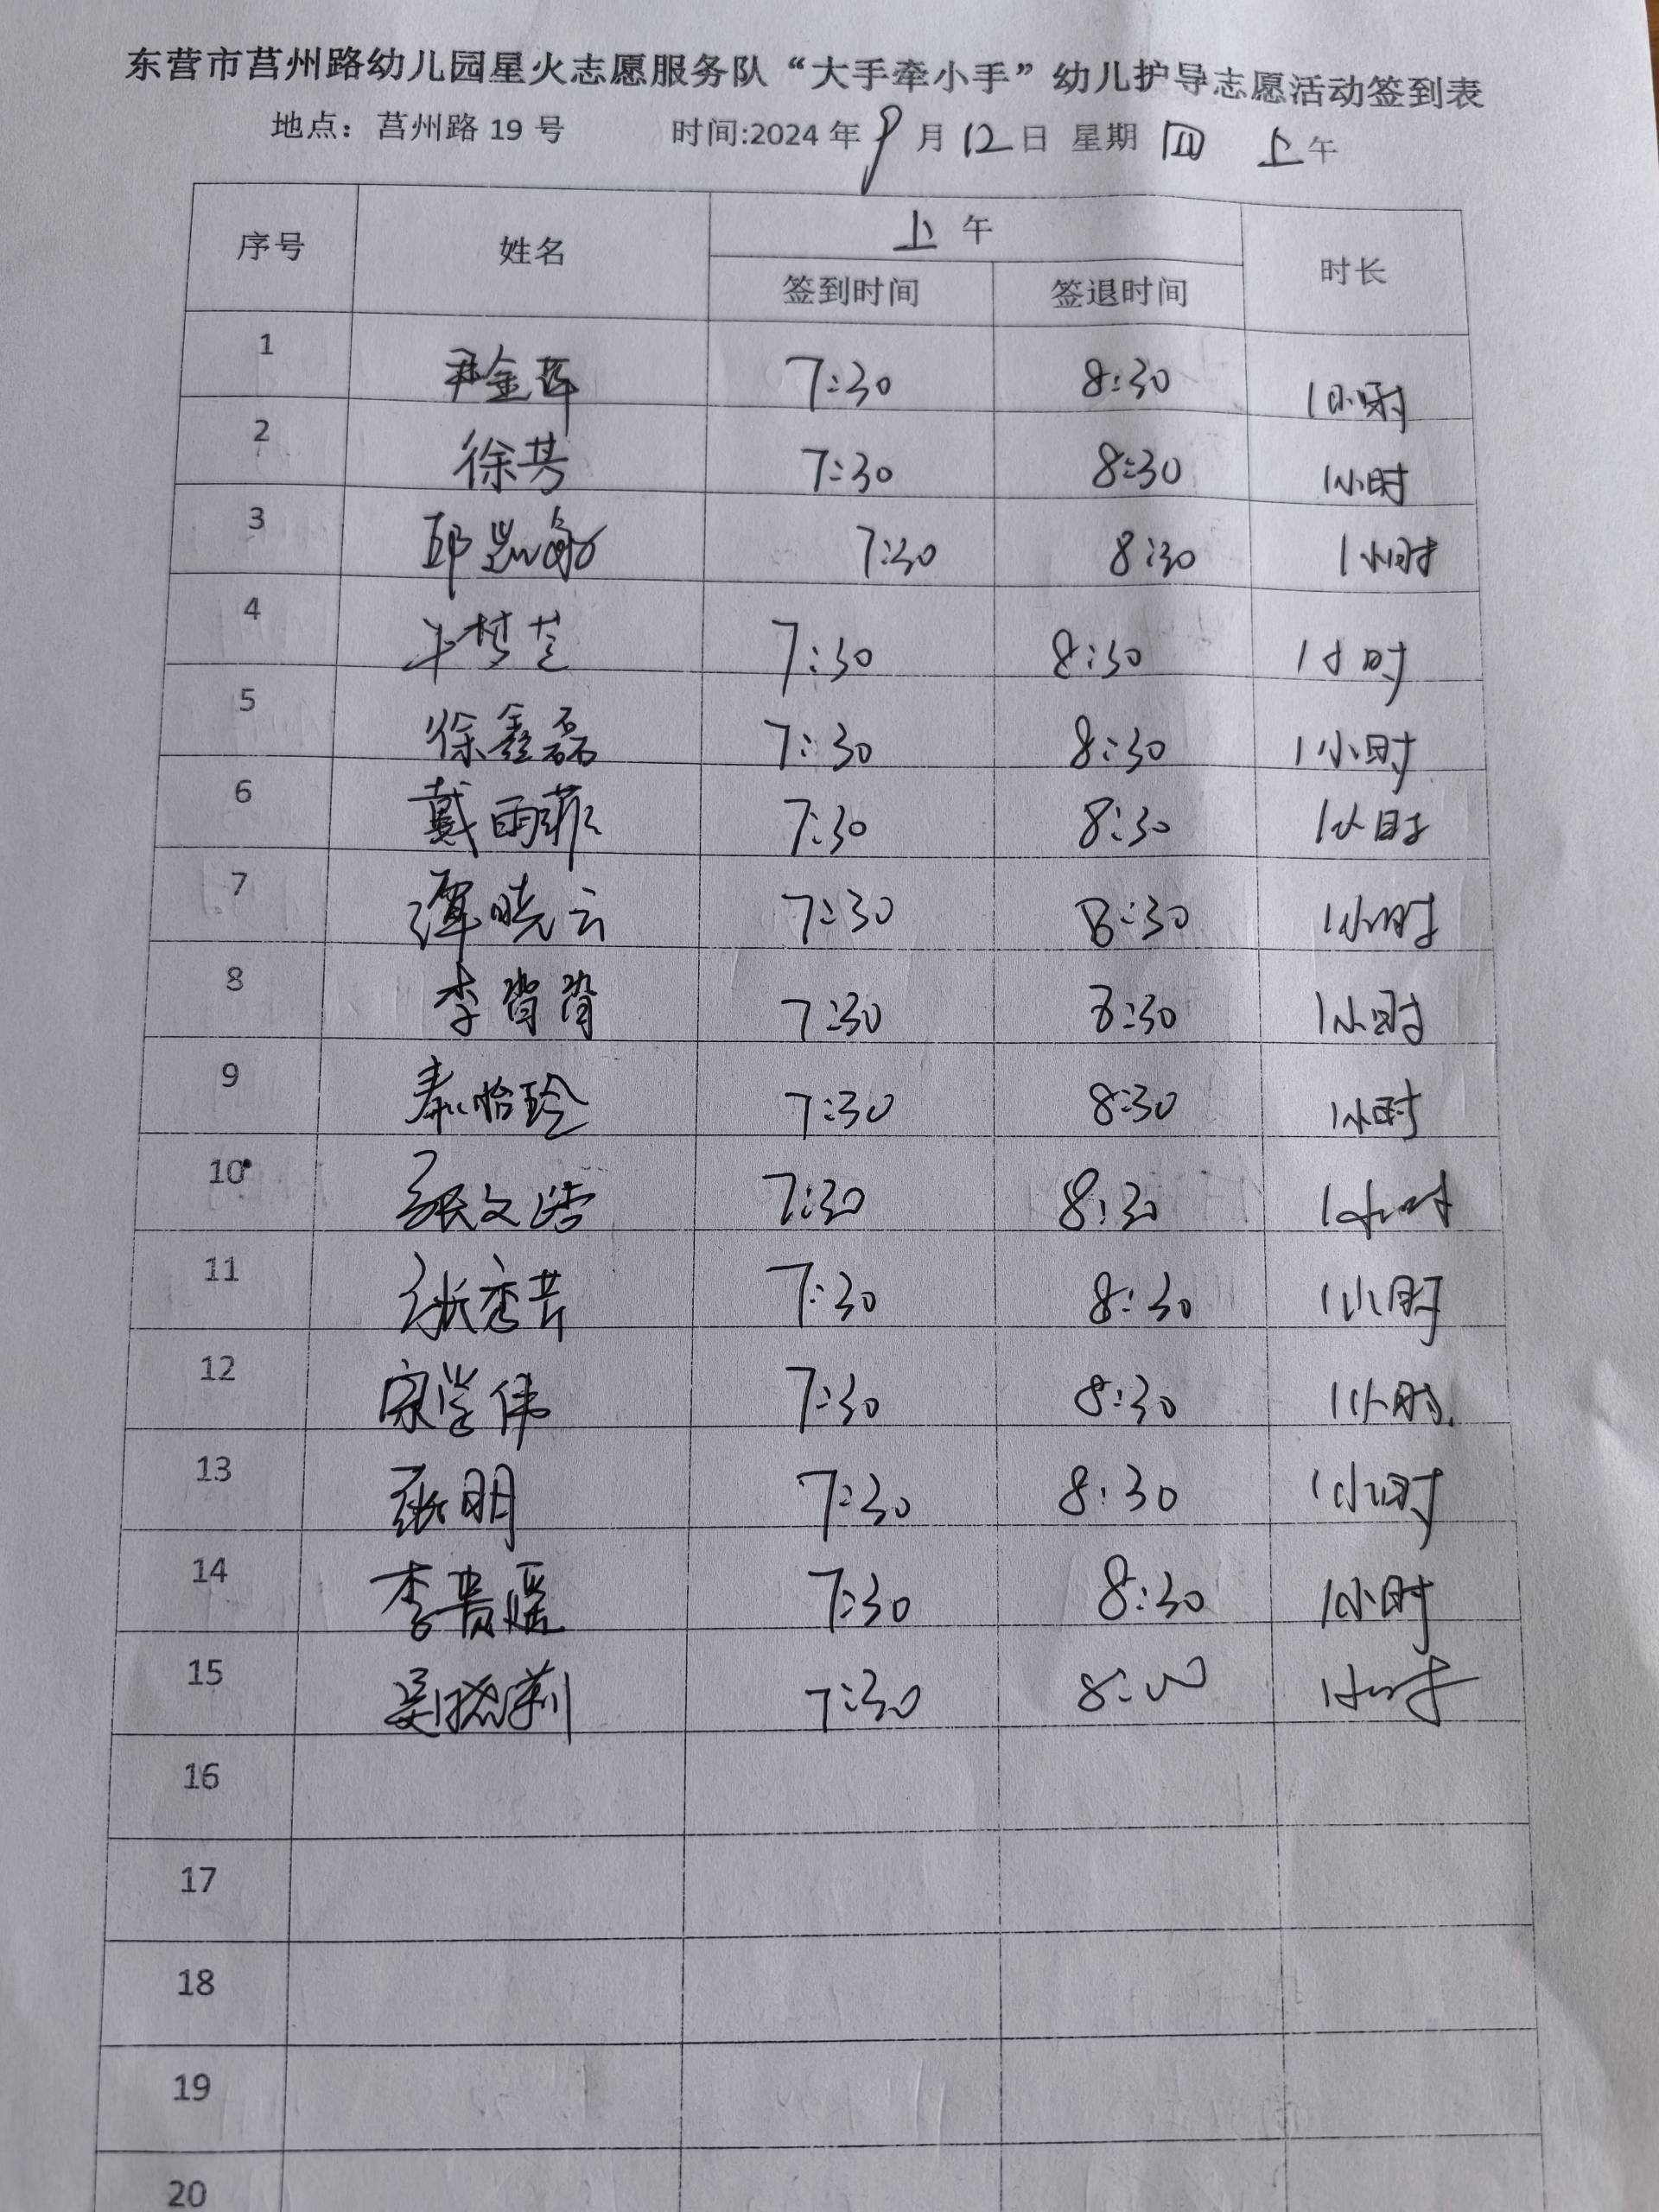 东营市莒州路幼儿园星火志愿服务队“大手牵小手”幼儿护导志愿活动签到表
地点：莒州路 19 号 时间:2024 年 9 月 12 日 星期 四 上午
序号 姓名 上午 时长
签到时间 签退时间
1 尹金莲 7:30 8:30 1小时
2 徐芳 7:30 8:30 1小时
3 邱 7:30 8:30 1小时
4 7:30 8:30 1小时
5 徐鑫磊 7:30 8:30 1小时
6 戴雨菲 7:30 8:30 1小时
7 谭晓云 7:30 8:30 1小时
8 李 7:30 8:30 1小时
9 秦怡玲 7:30 8:30 1小时
10 张文浩 7:30 8:30 1小时
11 张杏芳 7:30 8:30 1小时
12 宋学伟 7:30 8:30 1小时
13 张明 7:30 8:30 1小时
14 李贵瑶 7:30 8:30 1小时
15 吴晓莉 7:30 8: 1小时
16
17
18
19
20